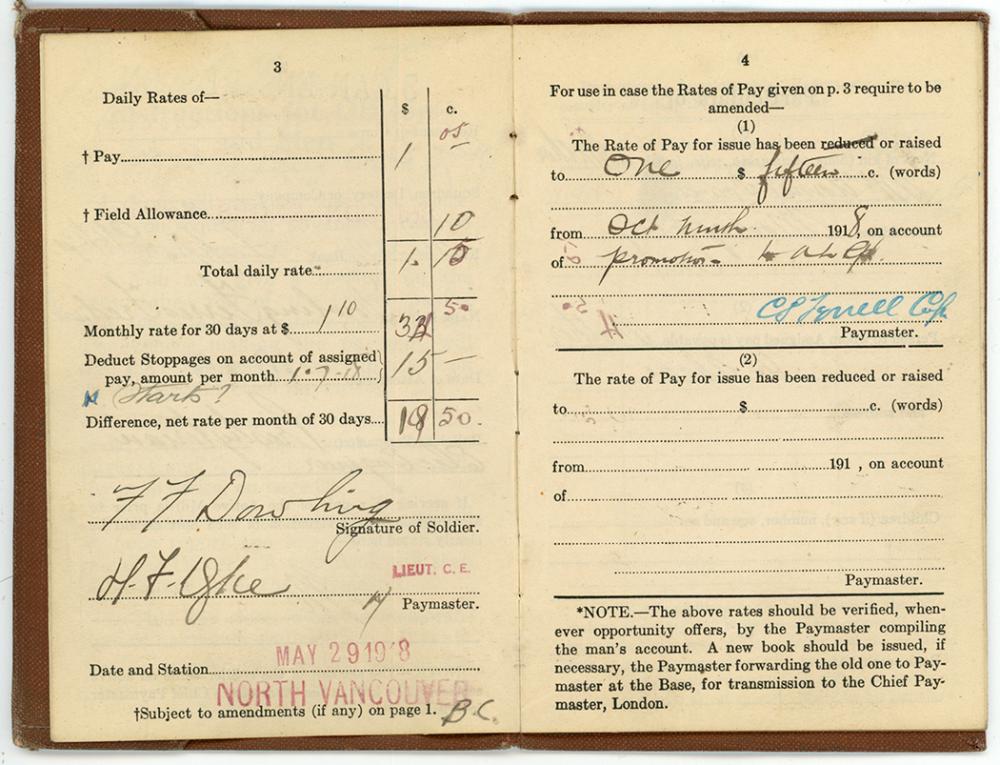 3
Daily Rates of—
$ c.
† Pay 1 05
† Field Allowance 10
Total daily rate 1. 15
Monthly rate for 30 days at $ 1 10 50
Deduct Stoppages on account of assigned
pay, amount per month 1-7-18 15 —
Starts?
Difference, net rate per month of 30 days 19 50.
F F Dowling
Signature of Soldier.
LIEUT. C. E.
H. F.
Paymaster.
Date and Station MAY 29 1918
NORTH VANCOUVER
†Subject to amendments (if any) on page 1. B.C.
4
For use in case the Rates of Pay given on p. 3 require to be
amended—
(1)
The Rate of Pay for issue has been reduced or raised
to One $ fifteen c. (words)
from Oct ninth 1918, on account
of promotion to
4 50
Capt
Paymaster.
(2)
The rate of Pay for issue has been reduced or raised
to $ c. (words)
from 191 , on account
of
Paymaster.
*NOTE.—The above rates should be verified, when-
ever opportunity offers, by the Paymaster compiling
the man's account. A new book should be issued, if
necessary, the Paymaster forwarding the old one to Pay-
master at the Base, for transmission to the Chief Pay-
master, London.